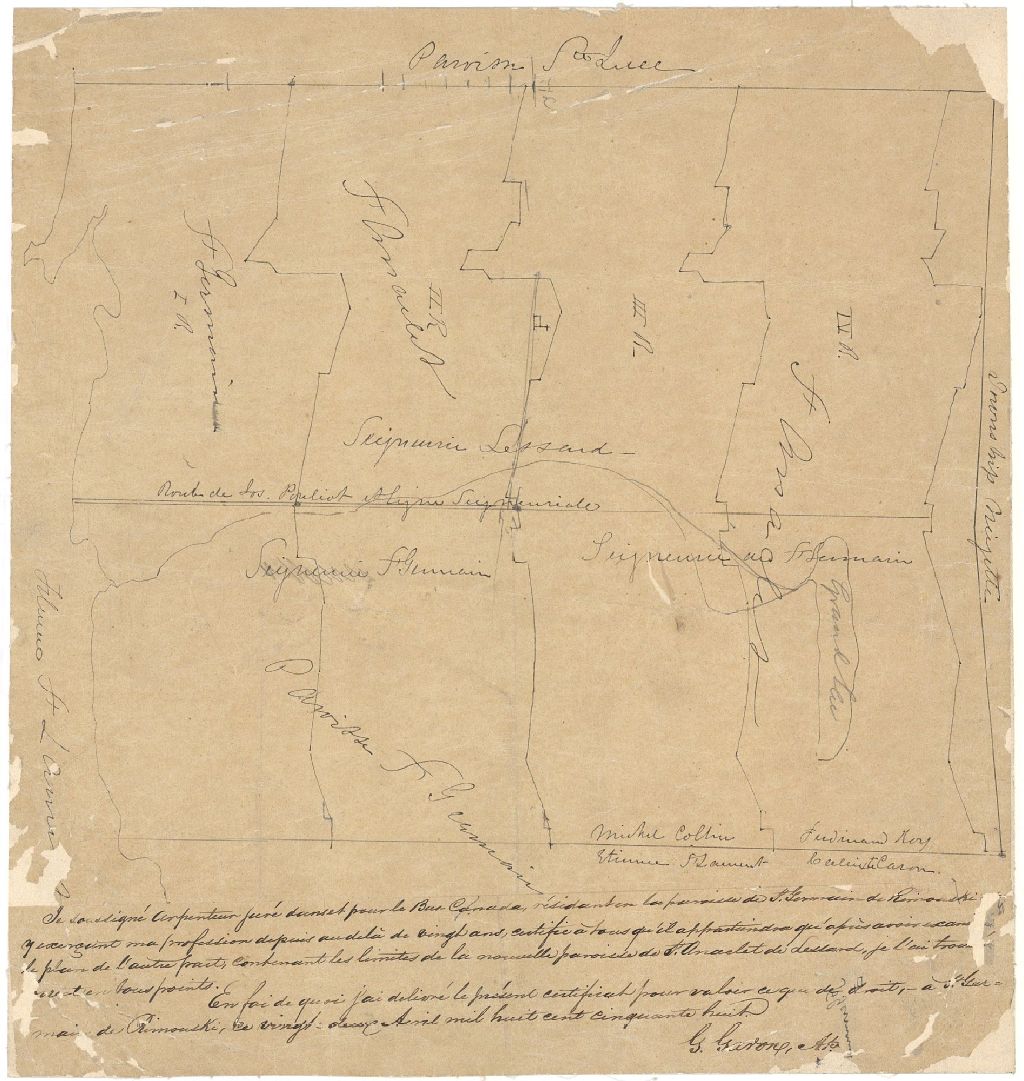 Paroisse Ste Luce
St Germain
I R.
St Anaclet
II R
III R
IV R.
St Anaclet
Township Neigette
Seigneurie Lessard
Route de Jos. Pouliot et ligne Seigneuriale
Seigneurie St Germain
Seigneurie de St Germain
Grand Lac
Paroisse St Germain
Fleuve St Laurent
Michel Collin
Ferdinand Roy
Etienne St Laurent
Caron.
Je soussigné Arpenteur juré dans et pour le Bas Canada, résidant en la paroisse de St. Germain de Rimouski
y exerçant ma profession depuis au delà de vingt ans, certifie à tous qu'il appartiendra qu'après avoir exam
le plan de l'autre part, contenant les limites de la nouvelle paroisse de St Anaclet de Lessard, je l'ai trou
en tous points.
En foi de quoi j'ai délivré le présent certificat pour valoir ce que de droit, – à St Ger-
main de Rimouski, ce vingt-deux Avril mil huit cent cinquante huit